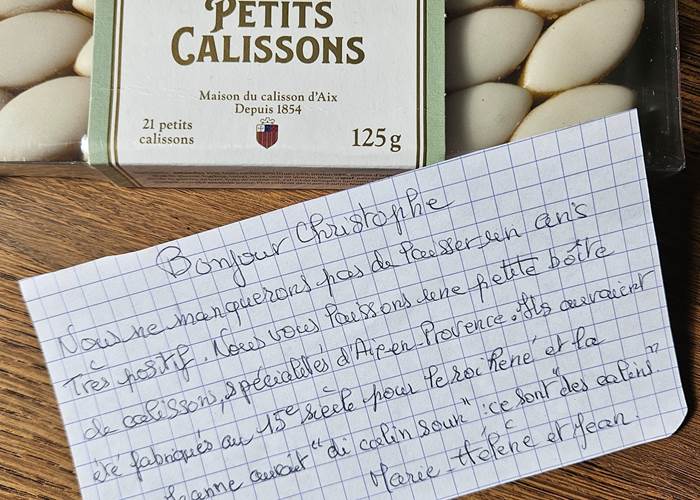 PETITS
CALISSONS
Maison du calisson d'Aix
Depuis 1854
21 petits
calissons
125 g
Bonjour Christophe
Nous ne manquerons pas de laisser un avis
Très positif. Nous vous laissons une petite boîte
de calissons, spécialités d'Aix-en-Provence. Ils auraient
été fabriqués au 15e siècle pour le roi René et la
Jeanne aurait "di calin soun": ce sont "des calins"
Marie-Hélène et Jean.